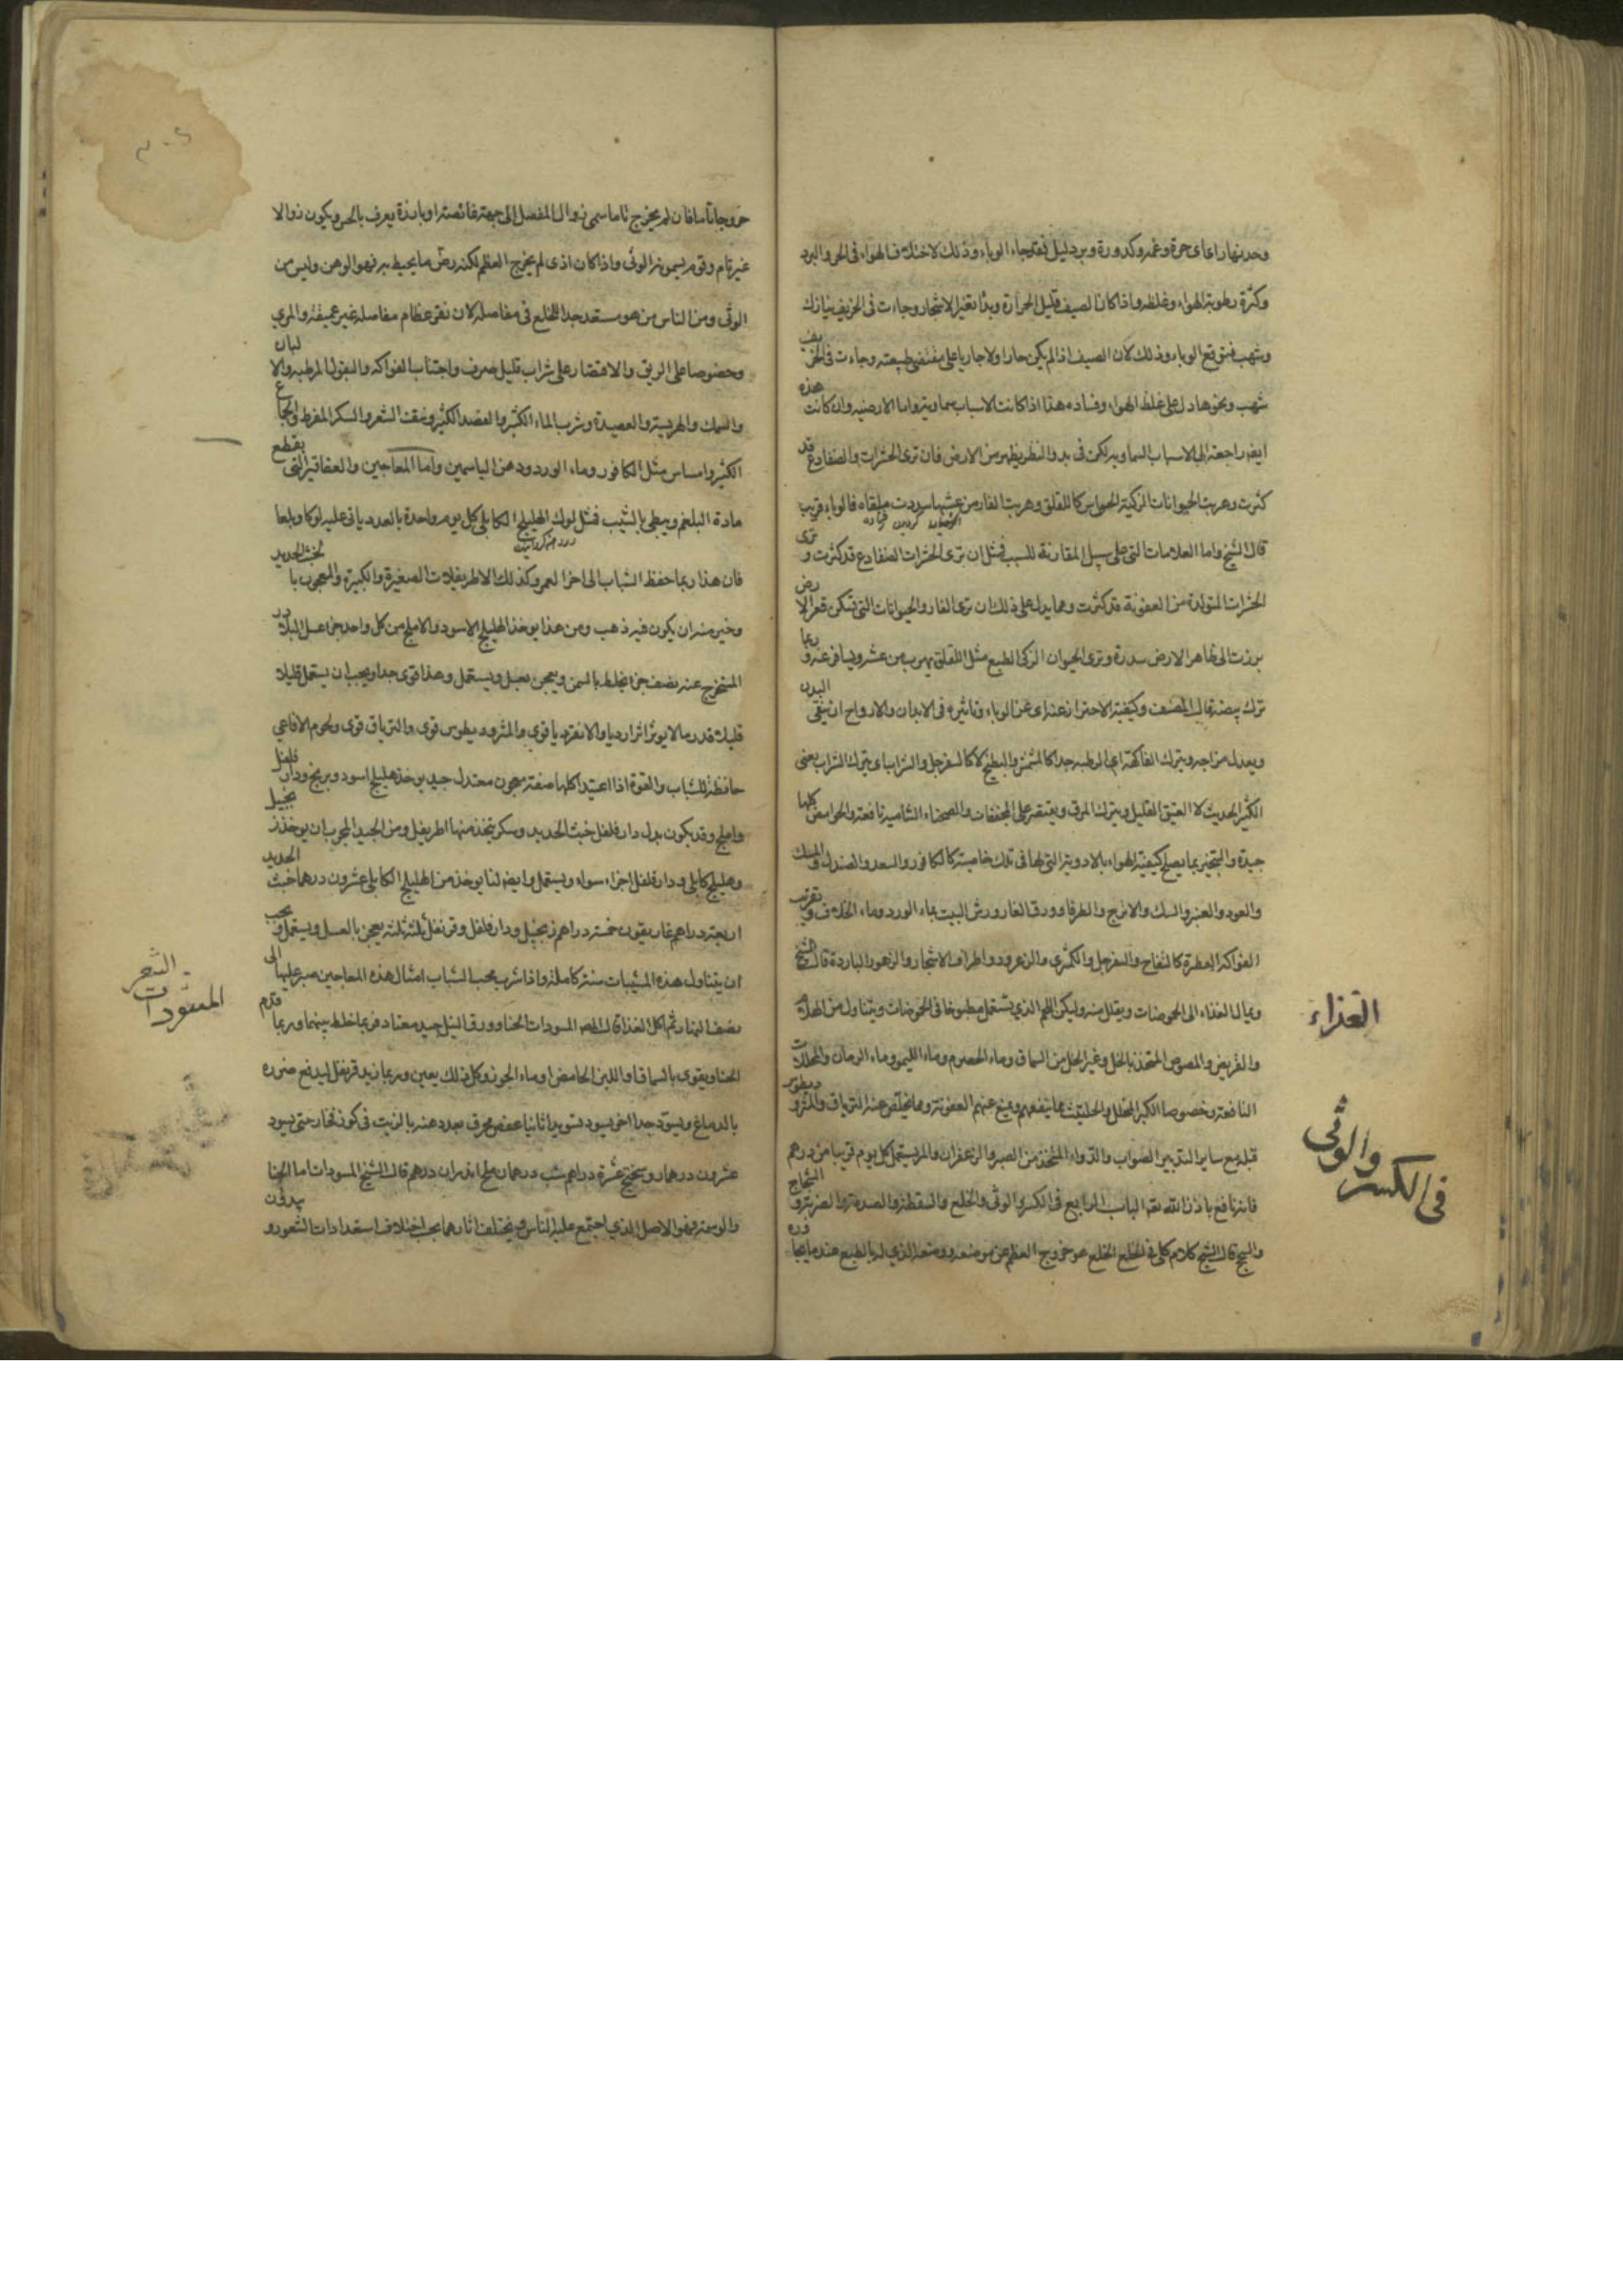 وحدتها راعاى حمرة وغمه وكدورة وبرد ليل فقد جاء الوباء وذلك لاختلاف الهواء فى الحر والبرد
وكثرة رطوبة الهواء وغلظه واذا كان الصيف قليل الحرارة وبدا تغير الاشجار وجاءت فى الخريف نيازك
وشهب فتوقع الوباء وذلك لان الصيف اذا لم يكن حارا ولا جاريا على مقتضى طبيعته وجاءت فى الخريف
شهب ونحوها دل على غلظ الهواء وفساده هذا اذا كانت الاسباب سماوية واما الارضيه وان كانت هذه
ايضا راجعة الى الاسباب السماوية لكن فى بدو النظر يظهر من الارض فان ترى الحشرات والضفادع قد
كثرت وهربت الحيوانات الزكية الحواس كاللقلق وهربت الفار من فالوباء قريب
قال الشيخ واما العلامات التى على سبيل المقارنة للسبب فمثل ان ترى الحشرات الضفادع قد كثرت و ترى
الحشرات المتولدة من العفونة قد كثرت ومما يدل على ذلك ان ترى الفار والحيوانات التى تسكن قعر الارض
برزت الى ظاهر الارض سدرة وترى الحيوان الزكى الطبع مثل اللقلق يهرب من عشه ويسافر عنه وربما
ترك بيضه قال المصنف وكيفية الاحتراز عنه اى عن الوباء وتاثيره فى الابدان والارواح ان ينقى البدن
ويعدل مزاجه ويترك الفاكهة اى الرطبه جدا كالمشمش والبطيخ لا كالسفرجل والشراب اى يترك الشراب يعنى
الكثير الحديث لا العتيق القليل ويترك المرق ويقتصر على المجففات والصحناء الشامية نافعة والحوامض كلها
جيدة والتبخير بما يصلح كيفية الهواء بالادوية التى لها فى تلك خاصية كالكافور والسعد والصندل والمسك
والعود والعنبر والسك والاترج والطرفا وورق الغار ورش البيت بماء الورد وماء الخلاف وتقريب
الفواكه العطرة كالتفاح والسفرجل والكمثرى والزعرور واطراف الاشجار والزهور الباردة قال الشيخ
ويمال الغذاء الى الحموضات ويقلل منه وليكن اللحم الذي يستعمل مطبوخا فى الحموضات ويتناول من الهلام
والقريص والمصوص المتخذ بالخل وغير الخل من السماق وماء الحصرم وماء الليمو وماء الرمان والمخللات
النافعة وخصوصا الكبر المخلل والحلتيت مما ينفعهم ويمنع عنهم العفونة ومما يخلص عنه الترياق والمثروديطوس
قبله مع ساير التدبير الصواب والدواء المتخذ من الصبر والزعفران والمر يستعمل كل يوم قريبا من درهم
فانه نافع باذن الله تعه الباب الرابع فى الكسر والوثى والخلع والسقطة والصدمة والضربة والشجاج
والسحج قال الشيخ كلام كلى فى الخلع الخلع هو خروج العظم عن موضعه ووضعه الذي له بالطبع عندما يجاوره
الغذاء
فى الكسر والوثى
خروجا تاما فان لم يخرج تاما سمى زوال المفصل الى جهة غائصة او بارزة يعرف بالحس ويكون زوالا
غير تام وقوم يسمونه الوثى واذا كان اذى لم يخرج العظم لكنه رض ما يحيط به فهو الوهن وليس من
الوثى ومن الناس من هو مستعد جدا للخلع فى مفاصله لان نقر عظام مفاصله غير عميقة والمري
وخصوصا على الريق والاقتصار على شراب قليل صرف واجتناب الفواكه والبقول المرطبه والالبان
والسمك والهريسة والعصيدة وشرب الماء الكثير والفصد الكثير ونتف الشعر والسكر المفرط والجماع
الكثير وامساس مثل الكافور وماء الورد ودهن الياسمين واما المعاجين والعقاقير التى يقطع
مادة البلغم ويبطى بالشيب فمثل لوك الهليلج الكابلى كل يوم واحدة بالعدد ياتى عليه لوكا وبلعا
فان هذا ربما حفظ الشباب الى اخر العمر وكذلك الاطريفلات الصغيرة والكبيرة والمعجون بالخبث الحديد
وخير منه ان يكون فيه ذهب ومن هذا يوخذ الهليلج الاسود والاملج من كل واحد جزء عسل البلادر
المستخرج عنه نصف جزء يخلط بالسمن ويعجن بعسل ويستعمل وهذا قوى جدا ويجب ان يستعمل قليلا
قليلا قدر ما لا يوثر اثرا رديا والانقرديا قوى والمثروديطوس قوى والترياق قوى ولحوم الافاعي
حافظة للشباب والقوة اذا اعتيد اكلها صفة معجون معتدل جيد يوخذ هليلج اسود وبرنج ودار فلفل
واملج وقد يكون بدل دار فلفل خبث الحديد وسكر يتخذ منها اطريفل ومن الجيد المجرب ان يوخذ زنجبيل
وهليلج كابلى ودار فلفل اجزاء سواء ويستعمل وايضا لنا يوخذ من الهليلج الكابلى عشرون درهما خبث الحديد
اربعة دراهم غاريقون خمسة دراهم زنجبيل ودار فلفل وقرنفل ثلثة ثلثة يعجن بالعسل ويستعمل ويجب
ان يتناول هذه المشيبات سنة كاملة واذا شرب محب الشباب امثال هذه المعاجين صبر عليها الى
نصف النهار ثم اكل الغذا قال المصه المسودات الحنا وورق النيل جيد معتاد فربما خلط بينهما وربما قدم
الحنا ويقوى بالسماق او اللبن الحامض او ماء الجوز وكل ذلك يعين وربما زيد قرنفل ليدفع ضرره
بالدماغ ويسود جدا اخر يسود تسويدا ثانيا عفص محرف بالزيت فى كوز فخار حتى يسود
عشرون درهما روسختج عشرة دراهم شب درهمان ملح اندرانى درهم قال الشيخ المسودات اما الحنا
والوسمة فهو الاصل الذي اجتمع عليه الناس ويختلف اثارهما بحب اختلاف استعدادات الشعور و
المسودات الشعر